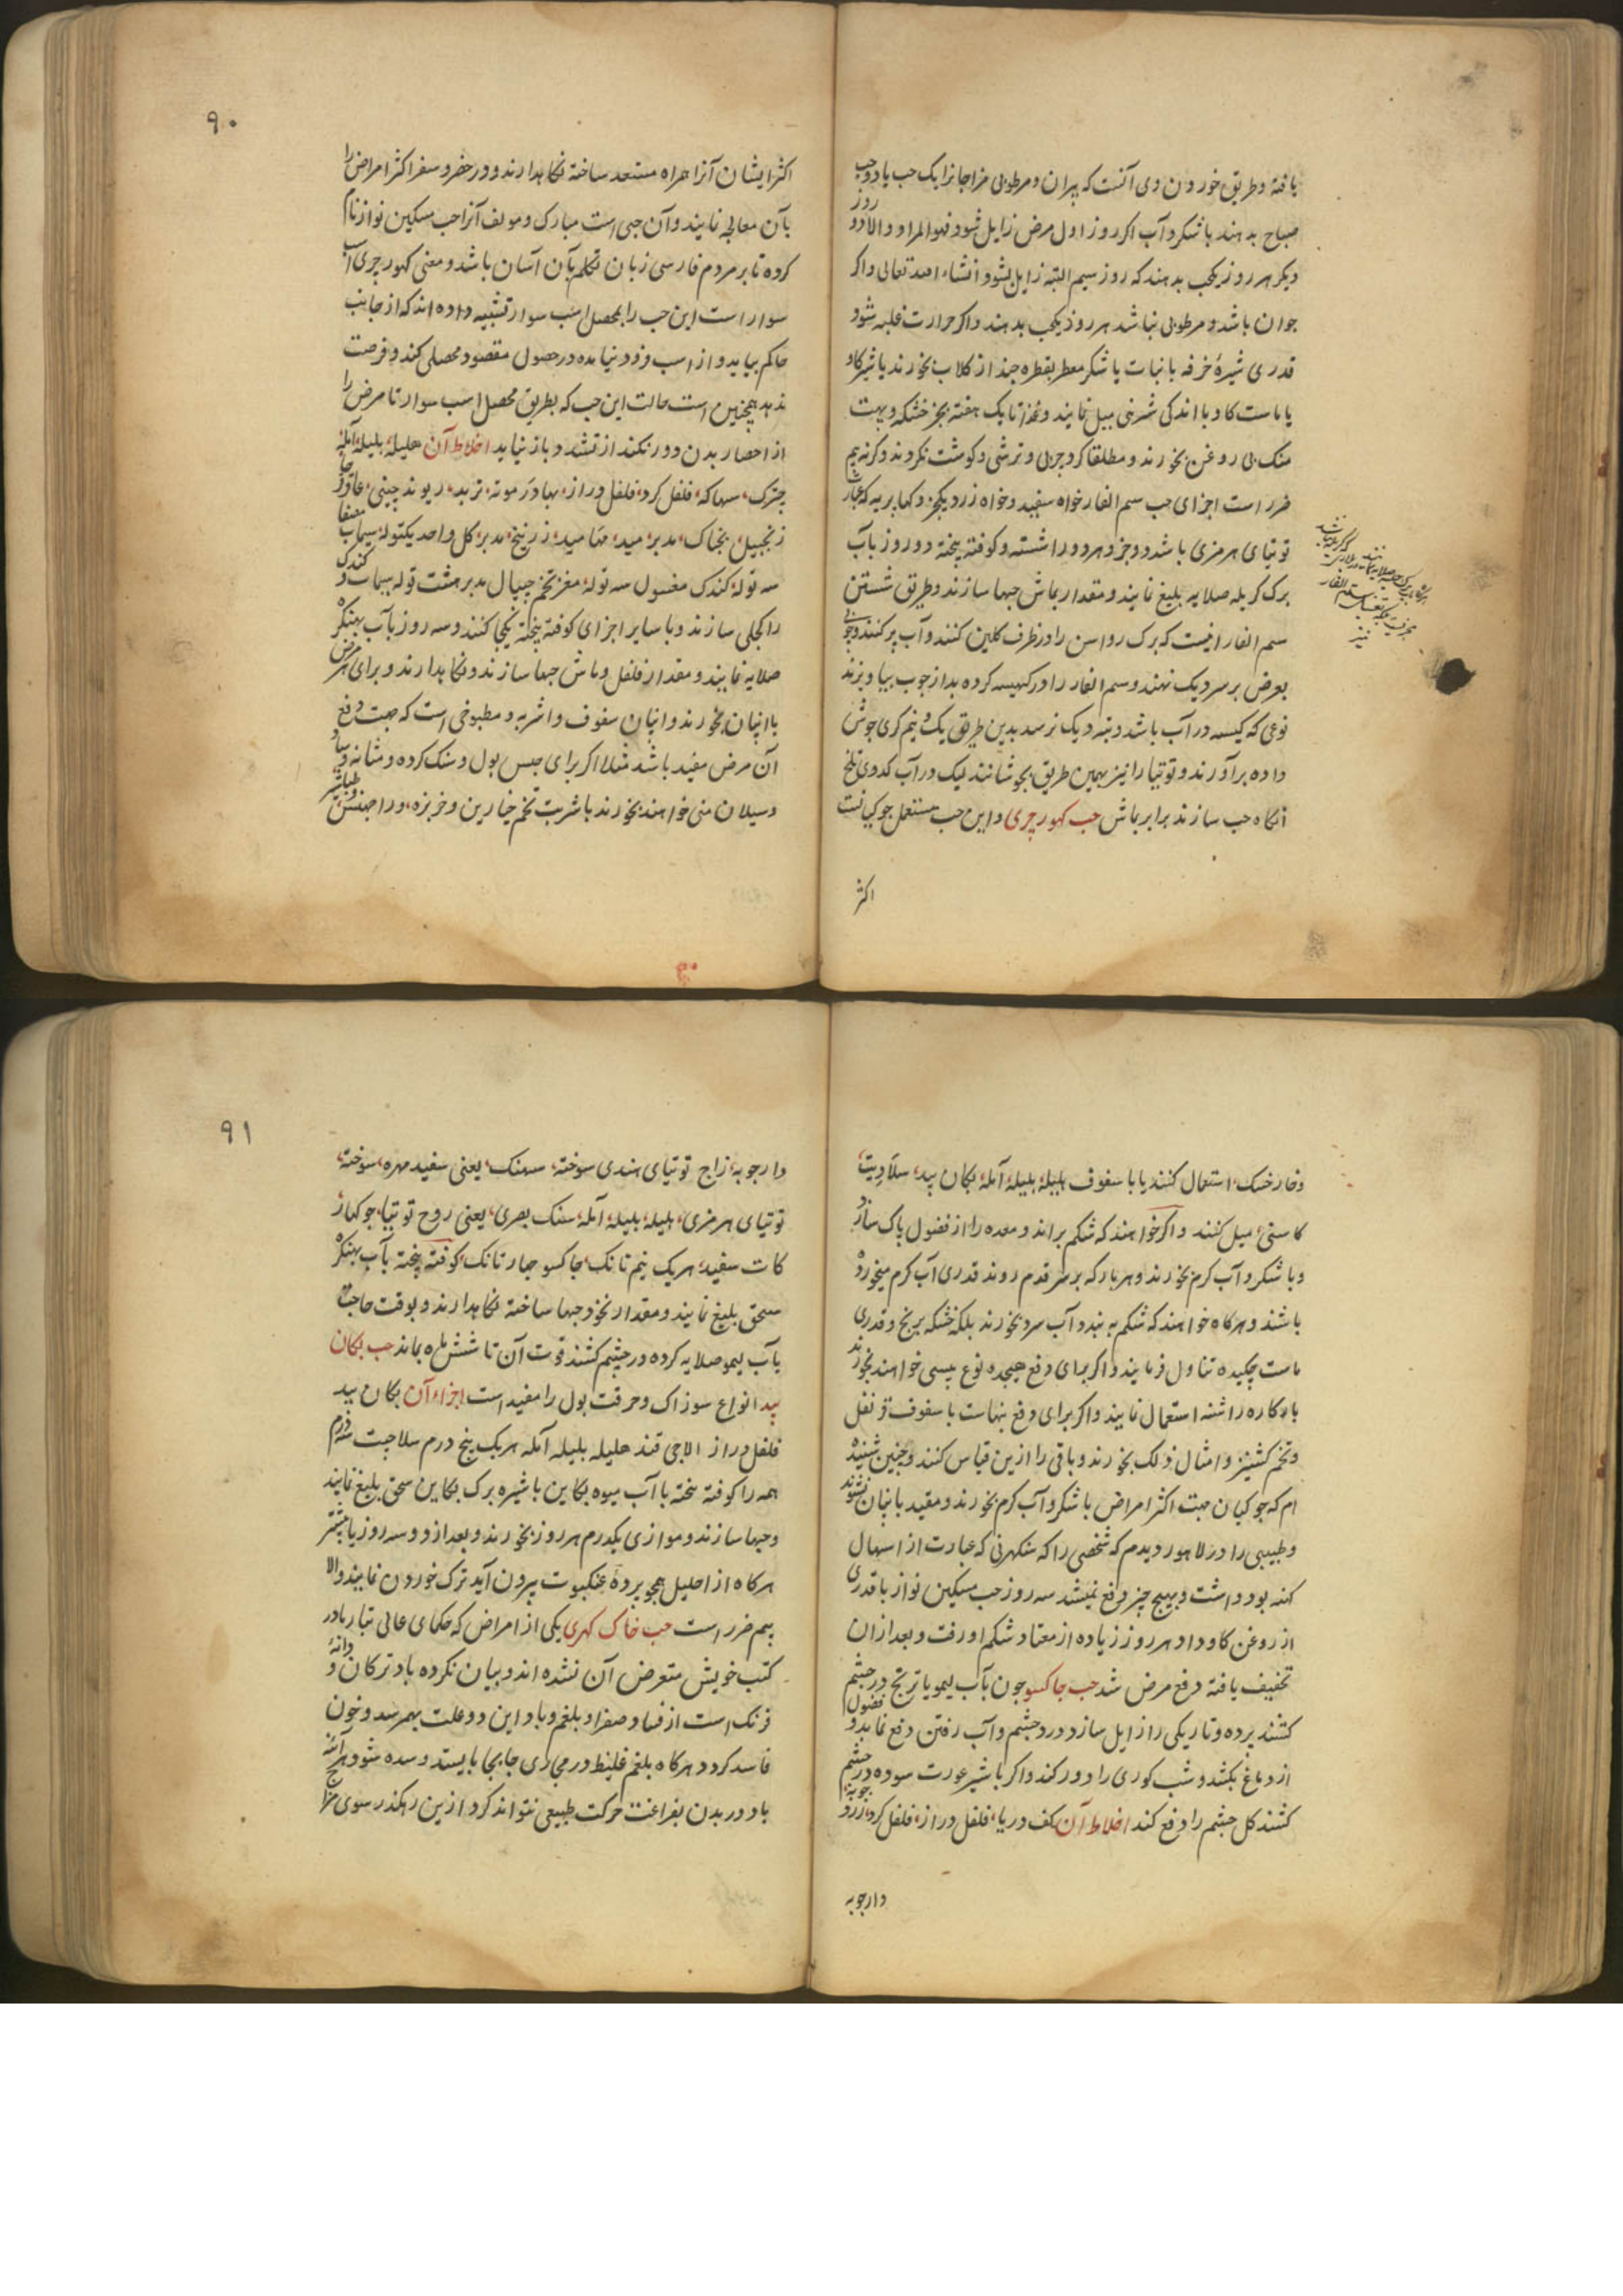 یافته و طریق خوردن وی آنست که پیران و مرطوبی مزاجانرا یک حب یا دو حب
صباح بدهند با شکر و آب اکر روز اول مرض زایل شود فهو المراد و الا دو روز
دیکر هر روز یکحب بدهند که روز سیم البته زایل شود انشاء الله تعالی و اکر
جوان باشد و مرطوبی نباشد هر روز یکحب بدهند و اکر حرارت غلبه شود
قدری شیرهٔ خرفه با نبات یا شکر معطر بقطره چند از کلاب بخورند یا شیر کاو
یا ماست کاو با اندکی شرنی میل نمایند و غذا تا یک هفته بجز خشکه و بهت
منک بی روغن بخورند و مطلقا کرد چربی و ترشی و کوشت نکردند و کرنه بیم
ضرر است اجزای حب سم الفار خواه سفید و خواه زرد یکجز و کهاپریه که
توتیای هرمزی باشد دو جز و هر دو را شسته و کوفته پیخته دو روز بآب
برک کریله صلایه بلیغ نمایند و مقدار ماش حبها سازند و طریق شستن
سم الفار اینست که برک رواسن را در ظرف کلین کنند و آب پر کنند و چوبی
بعرض بر سر دیک نهند و سم الفار را در کیسه کرده بداز چوب بیاویزند
نوعی که کیسه در آب باشد و بته دیک نرسد بدین طریق یک و نیم کری جوش
داده برآورند و توتیا را نیز بهمین طریق بجوشانند لیک در آب کدوی تلخ
انکاه حب سازند برابر ماش حب کهورچری و این حب مستعمل جوکیانست
اکثر
۹۰
اکثر ایشان آنرا همراه مستعد ساخته نکاهدارند و در حضر و سفر اکثر امراض را
بآن معالجه نمایند و آن حبی است مبارک و مولف آنرا حب مسکین نواز نام
کرده تا بر مردم فارسی زبان تکلم بآن آسان باشد و معنی کهورچری اسپ
سوار است این حب را بمحصل اسب سوار تشبیه داده اند که از جانب
حاکم بیاید و از اسب فرود نیامده در حصول مقصود محصلی کند و فرصت
ندهد همچنین است حالت این حب که بطریق محصل اسب سوار تا مرض را
از احصار بدن دور نکند از تشدد باز نیاید اخلاط آن هلیله، بلیله، آمله
چترک، سهاکه، فلفل کرد، فلفل دراز، بهادر موته، تربد، ریوند چینی، عاقرقرحا
زنجبیل، بچناک، مدبر، مید، مها مید، زرنیخ، مدبر، کل واحد یکتوله، سیماب مصفا
سه توله، کندک مغسول سه توله، مغز تخم جیپال مدبر هشت توله سیماب و کندک
را کجلی سازند و با سایر اجزای کوفته پیخته یکجا کنند و سه روز بآب بهنکره
صلایه نمایند و مقدار فلفل و ماش حبها سازند و نکاهدارند و برای هر مرض
با انپان بخورند و انپان سفوف و اشربه و مطبوخی است که جهت دفع
آن مرض مفید باشد مثلا اکر برای حبس بول و سنک کرده و مثانه
و سیلان منی خواهند بخورند با شربت تخم خیارین و خربزه،
و خار خسک، استعمال کنند یا با سفوف هلیله بلیله آمله پکان بید، سلادیت،
کاسنی، میل کنند و اکر خواهند که شکم براند و معده را از فضول پاک سازد
و با شکر و آب کرم بخورند و هر بار که بر سر قدم روند قدری آب کرم میخورده
باشند و هرکاه خواهند که شکم به بندد آب سرد بخورند بلکه خشکه برنج و قدری
ماست چکیده تناول فرمایند و اکر برای دفع هیجده نوع پیسی خواهند بخورند
با دکاره را شسته استعمال نمایند و اکر برای دفع بنهاست با سفوف قرنفل
و تخم کشنیز و امثال ذلک بخورند و باقی را ازین قیاس کنند و چنین شنیده
ام که جوکیان جهت اکثر امراض با شکر و آب کرم بخورند و مقید بانپان نشوند
و طبیبی را در لاهور دیدم که شخصی را که سنکهرنی که عبارت از اسهال
کهنه بود داشت و بهیچ چیز دفع نمیشد سه روز حب مسکین نواز با قدری
از روغن کاو داد هر روز زیاده از معتاد شکم او رفت و بعد ازان
تخفیف یافته دفع مرض شد حب چاکسو چون بآب لیمو یا ترنج در چشم
کشند پرده و تاریکی را زایل سازد و درد چشم و آب رفتن دفع نماید و فضول
از دماغ بکشد و شب کوری را دور کند و اکر با شیر عورت سوده در چشم
کشند کل چشم را دفع کند اخلاط آن کف دریا، فلفل دراز، فلفل کرد،
دارچوبه
۹۱
دارچوبه، زاج توتیای هندی سوخته، سهنک، یعنی سفید مهره، سوخته،
توتیای هرمزی، هلیله، بلیله، آمله، سنک بصری، یعنی روح توتیا، جوکهار،
کات سفید، هر یک نیم تانک، چاکسو چهار تانک، کوفته پخته بآب بهنکره
سحق بلیغ نمایند و مقدار نخود حبها ساخته نکاهدارند و بوقت حاجت
بآب لیمو صلایه کرده در چشم کشند قوت آن تا شش ماه بماند حب پکان
بید انواع سوزاک و حرقت بول را مفید است اجزاء آن پکان بید
فلفل دراز الاچی قند هلیله بلیله آمله هر یک پنج درم سلاجیت سه درم
همه را کوفته پخته با آب میوه بکاین یا شیره برک بکاین سحق بلیغ نمایند
و حبها سازند و موازی یکدرم هر روز بخورند و بعد از دو سه روز یا بیشتر
هرکاه از احلیل همچو پردهٔ عنکبوت بیرون آید ترک خوردن نمایند و الا
بیم ضرر است حب خاک کهری یکی از امراض که حکمای عالی تبار ما در
کتب خویش متعرض آن نشده اند و بیان نکرده باد ترکان و دانهٔ
فرنک است از فساد صفرا و بلغم و باد این دو علت بهمرسد و خون
فاسد کردد هرکاه بلغم غلیظ در مجاری جابجا بایستد و سده شود هر آینه
باد در بدن بفراغت حرکت طبیعی نتواند کرد ازین رهکذر سوی مزاج